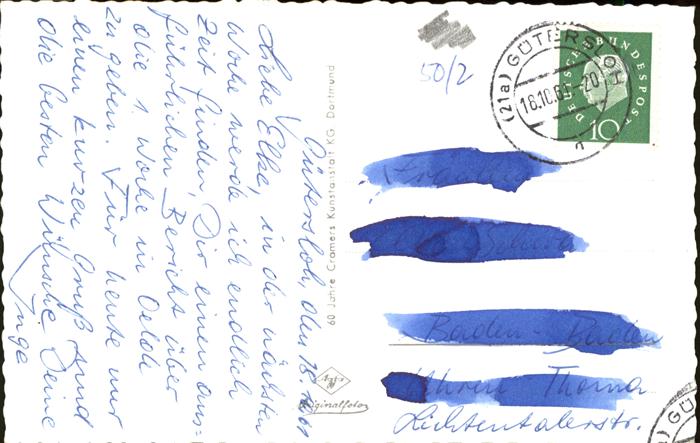 Gütersloh, den 18.
Liebe Elke, in der nächsten
Woche werde ich endlich
Zeit finden, Dir einen aus-
führlichen Bericht über
die 1. Woche in Oelde
zu geben. Für heute nur
einen kurzen Gruß und
die besten Wünsche Deine
Inge
60 Jahre Cramers Kunstanstalt KG Dortmund
Agfa
Originalfoto
50/2
(21a) GÜTERSLOH
-20
DEUTSCHE BUNDESPOST
10
Fräulein
Baden-Baden
Thoma
Lichtentalerstr.